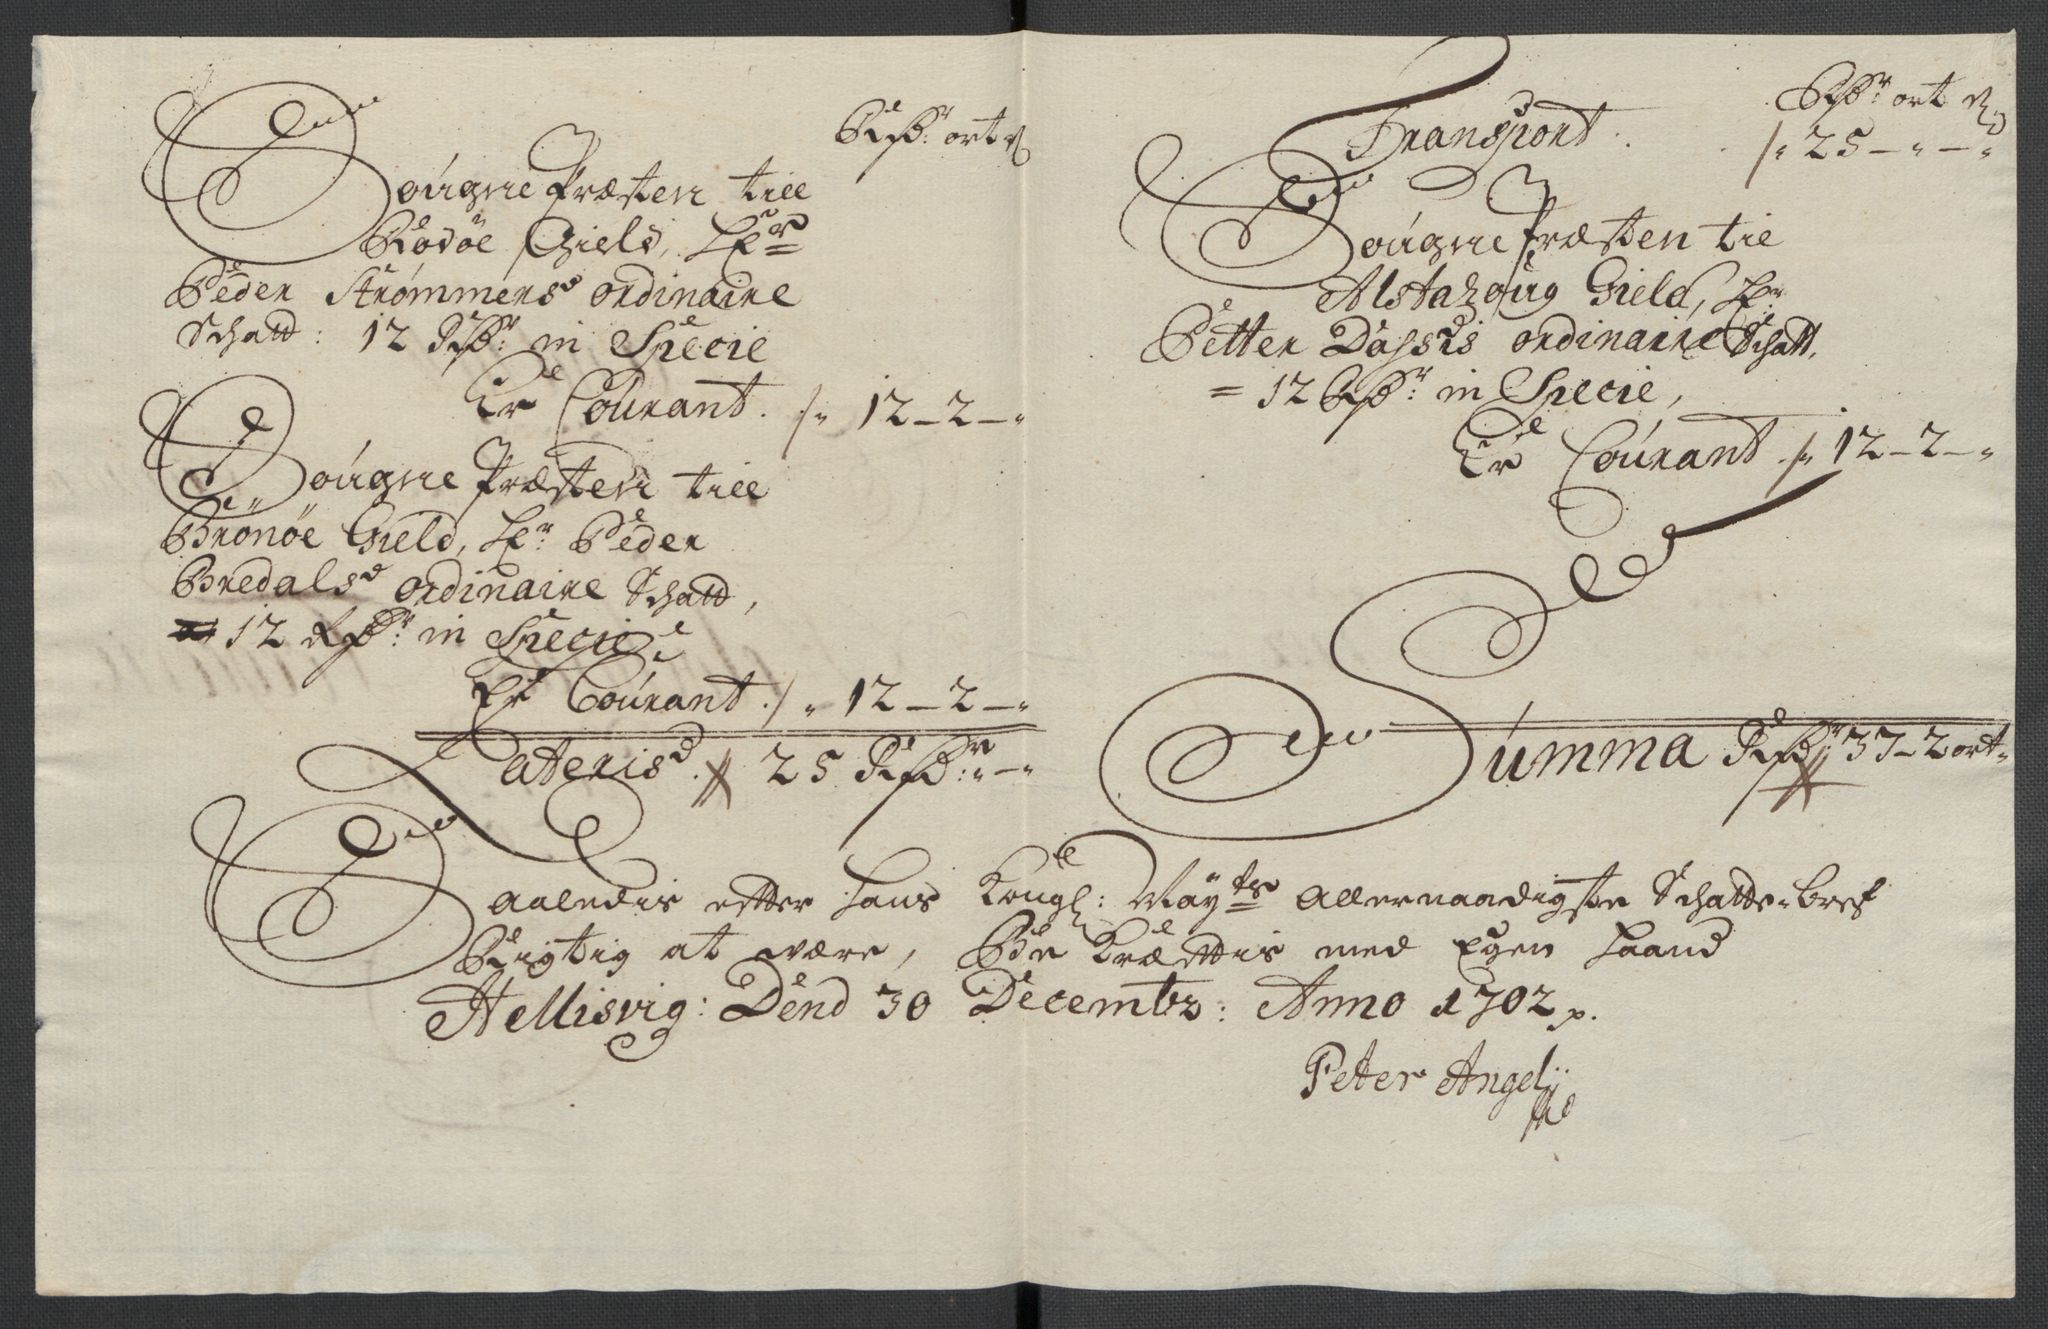 Rdr: ort ß
Sougne Præsten till
Rødøe Gield, Hr
Peder Strømmens ordinaire
Schatt: 12 Rdr: in Specie
Er Courant. /. 12 - 2 - "
Sougne Præsten till
Brønøe Gield, Hr Peder
Bredals ordinaire Schatt,
12 Rdr: in Specie
Er Courant /. 12 - 2 - "
Lateris. 25 Rdr: " - "
Rdr: ort ß
Transport. /. 25 - " - "
Sougne Præsten til
Alstahoug Gield, Hr
Petter Dasses ordinaire Schatt,
= 12 Rdr: in Specie,
Er Courant /. 12 - 2 - "
Summa Rdr 37 - 2 ort -
Saaledis efter Hans Kongl: Mayts Allernaadigste Schatte-bref
Rigtig at være, Bekræfftis med Egen Haand
Hellisvig: Dend 30 Decembr: Anno 1702 p.
Peter Angelj